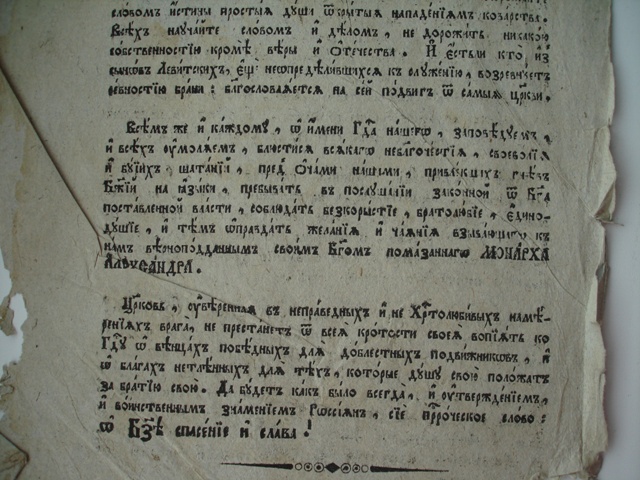 словомъ и҆стины простыя души ѿкрытыя нападенїямъ коварства.
Всѣхъ научайте словомъ и҆ дѣломъ, не дорожить никакою
собственностїю кромѣ вѣры и҆ ѻ҆течества. И҆ є҆стьли кто и҆з̾
сыновъ Леѵитскихъ, є҆щѐ неѡпредѣлившихся къ служенїю, возревнуетъ
ревностїю брани: благословляется на сей подвигъ ѿ самыя цр҃кви.
Всѣмъ же и҆ каждому, ѿ и҆мени Гдⷭ҇а нашегѡ, заповѣдуемъ,
и҆ всѣхъ ѹ҆моляемъ, блюстися всякагѡ неблагочестїя, своеволїя
и҆ буйихъ шатанїй, пред̾ ѻ҆чами нашими, привлекшихъ гнѣвъ
Бж҃їй на ꙗ҆зыки, пребывать въ послушанїи законной ѿ Бг҃а
поставленной власти, соблюдать безкорыстїе, братолюбїе, є҆дино-
душїе, и҆ тѣмъ ѡ҆правдать желанїя и҆ чаянїя взывающагѡ къ
намъ вѣрноподданнымъ своимъ Бг҃омъ помазаннагѡ МОНАРХА
АЛЕѮАНДРА.
Церковь, ѹ҆вѣренная въ неправедныхъ и҆ не Хрⷭ҇толюбивыхъ намѣ-
ренїяхъ врага, не престанетъ ѿ всея кротости своея вопїять ко
Гдⷭ҇у ѡ҆ вѣнцахъ побѣдныхъ для доблестныхъ подвижниковъ, и҆
ѡ҆ благахъ нетлѣнныхъ для тѣхъ, которые душу свою положатъ
за братїю свою. Да будетъ какъ было всегда, и҆ ѹ҆твержденїемъ,
и҆ воинственнымъ знаменїемъ Рѡссїянъ, сїе прⷪ҇роческое слово:
ѡ҆ Бз҃ѣ спасенїе и҆ слава!